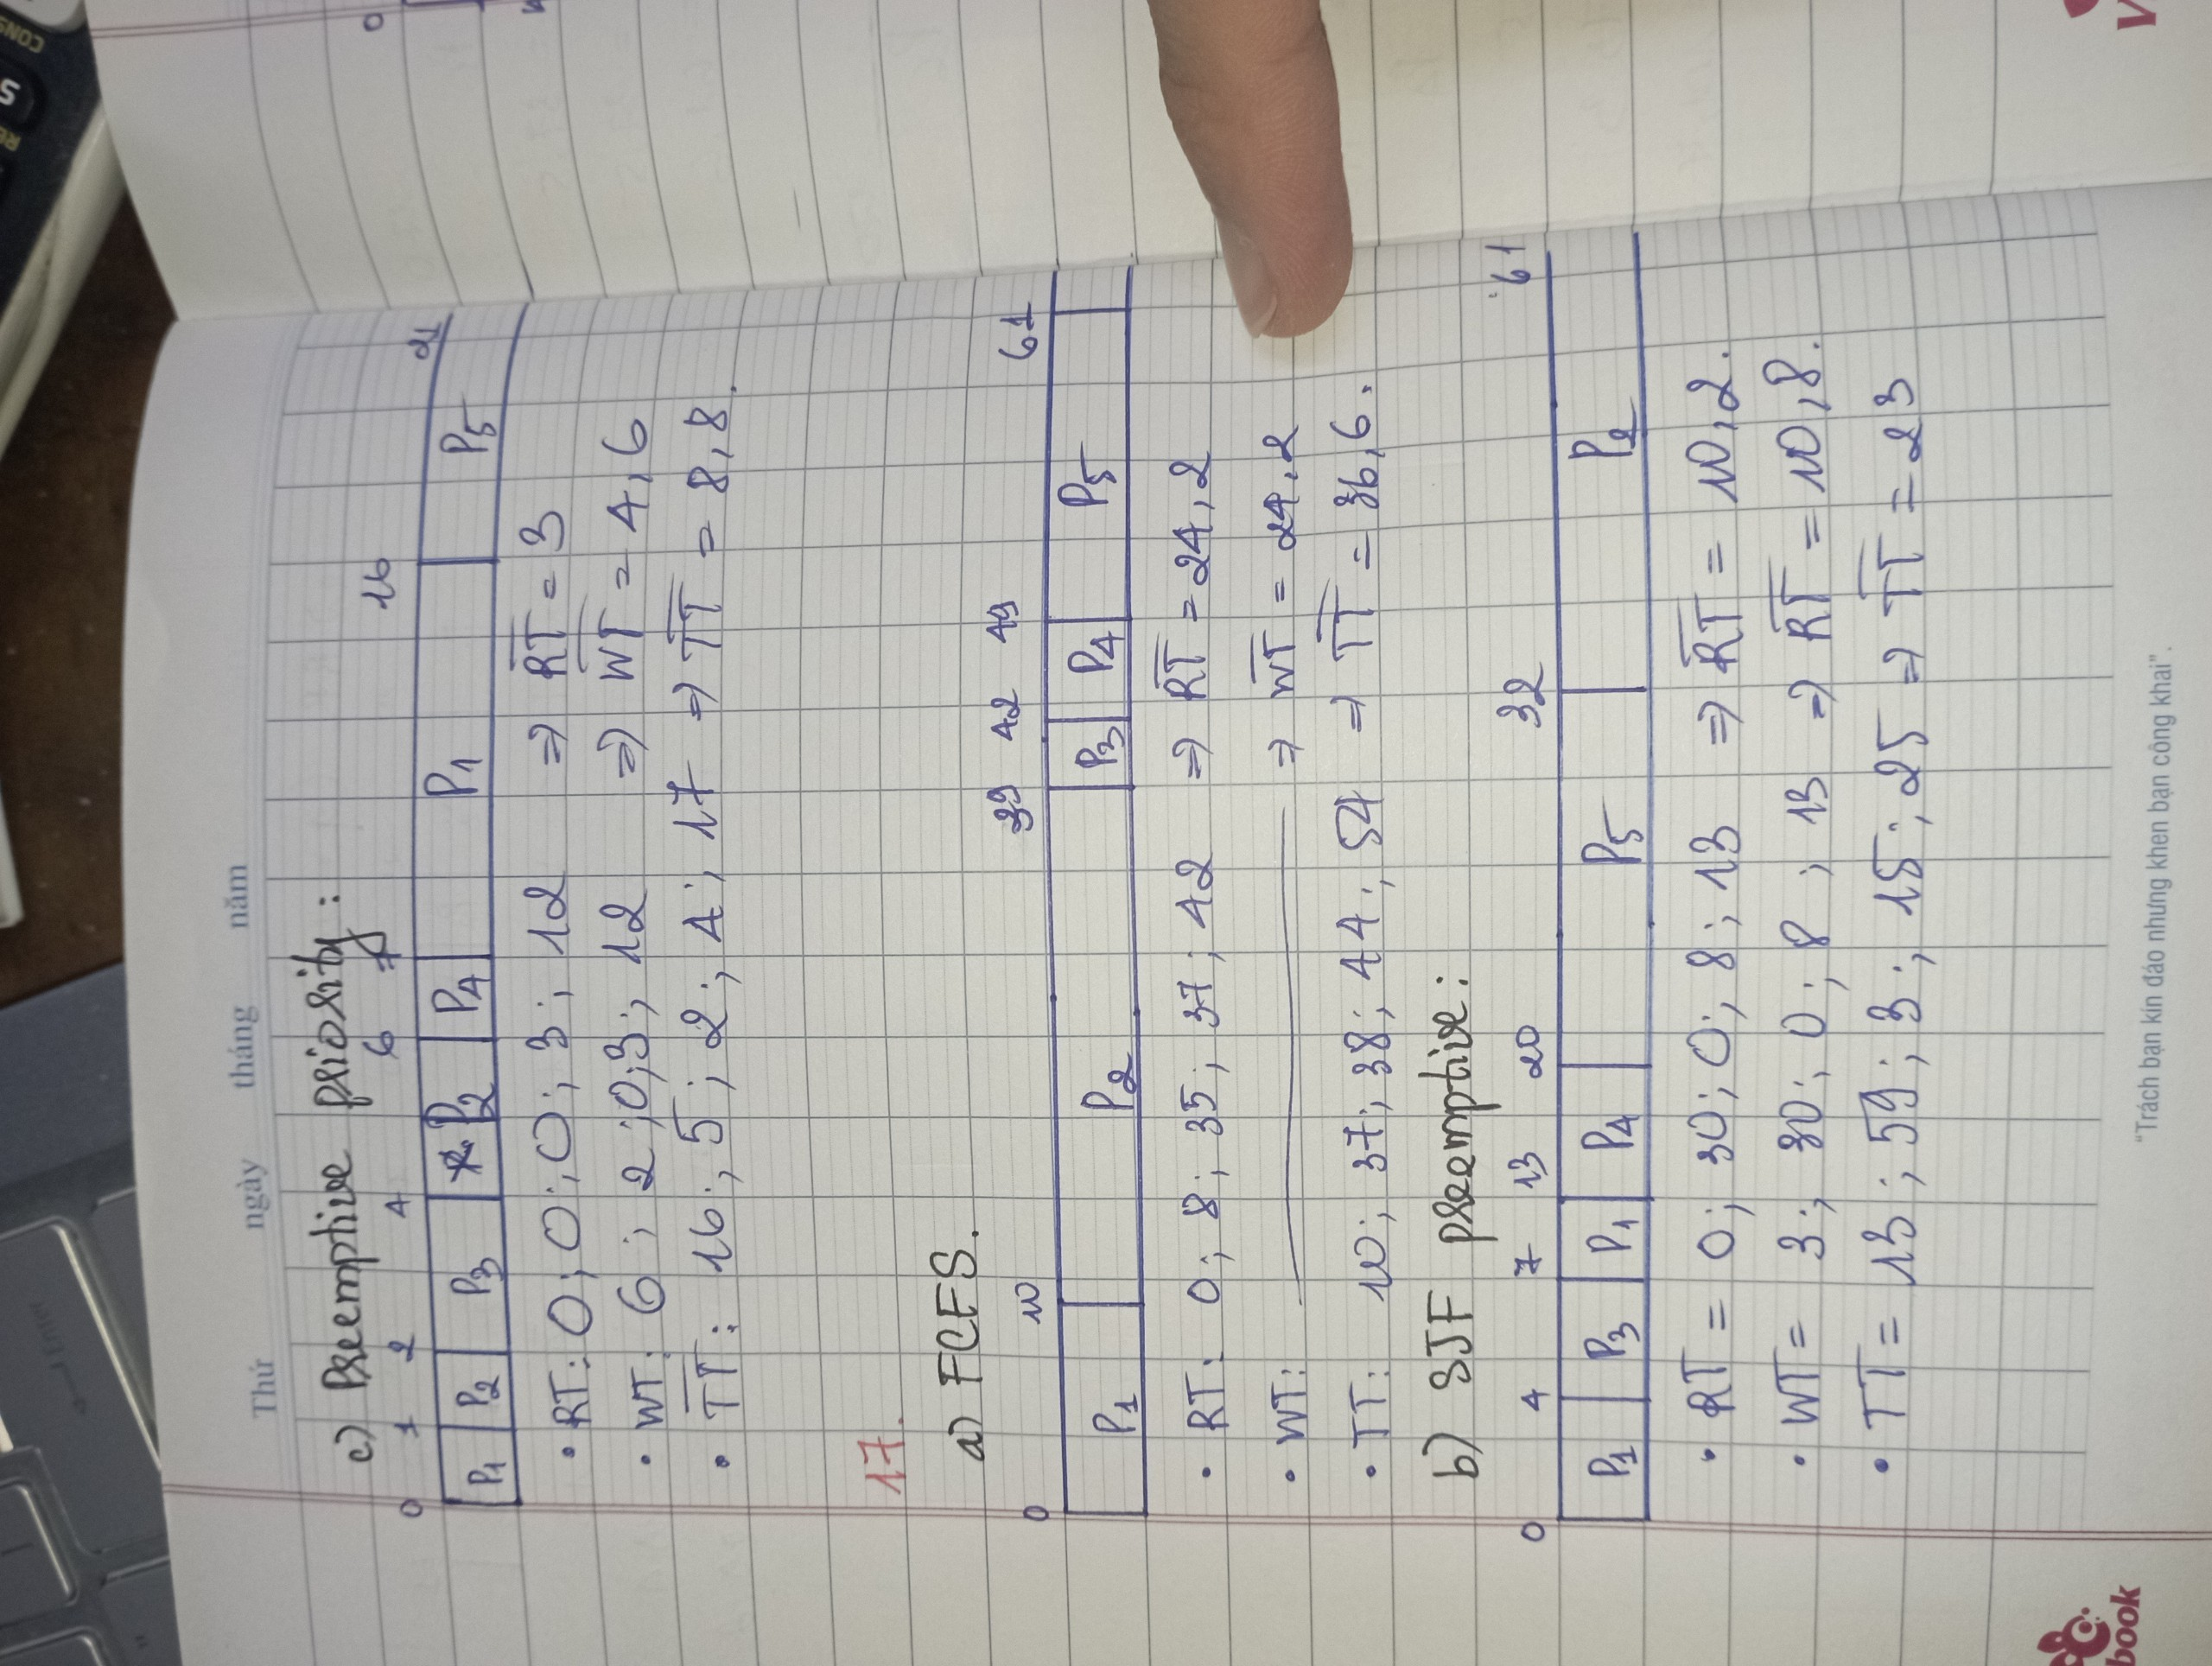 Thứ ngày tháng năm
c) Preemptive priority:
0 1 2 4 6 7 16 21
P1 P2 P3 P2 P4 P1 P5
• RT: 0; 0; 0; 3; 12 => RT = 3
• WT: 6; 2; 0; 3; 12 => WT = 4,6
• TT: 16; 5; 2; 4; 17 => TT = 8,8.
17.
a) FCFS.
0 10 39 42 49 61
P1 P2 P3 P4 P5
• RT: 0; 8; 35; 37; 42 => RT = 24,2
• WT: => WT = 24,2
• TT: 10; 37; 38; 44; 54 => TT = 36,6.
b) SJF preemptive:
0 4 7 13 20 32 61
P1 P3 P1 P4 P5 P2
• RT = 0; 30; 0; 8; 13 => RT = 10,2.
• WT = 3; 30; 0; 8; 13 => RT = 10,8.
• TT = 13; 59; 3; 15; 25 => TT = 23
"Trách bạn kín đáo nhưng khen bạn công khai".
book